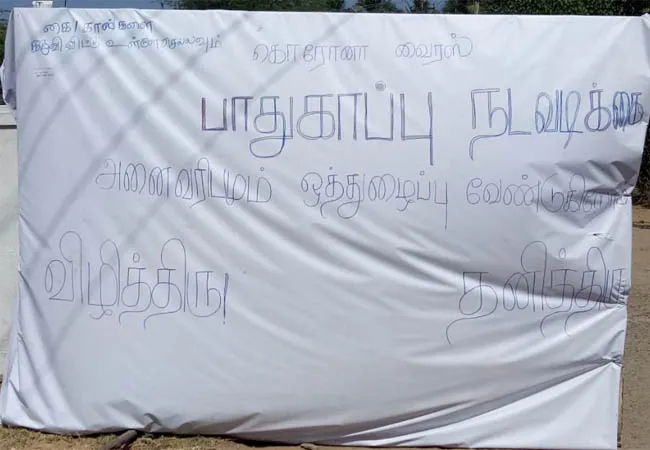 கை/கால்களை
கழுவிவிட்டு உள்ளே செல்லவும்
கொரோனா வைரஸ்
பாதுகாப்பு நடவடிக்கை
அனைவரிடமும் ஒத்துழைப்பு வேண்டுகிறோம்
விழித்திரு
தனித்திரு